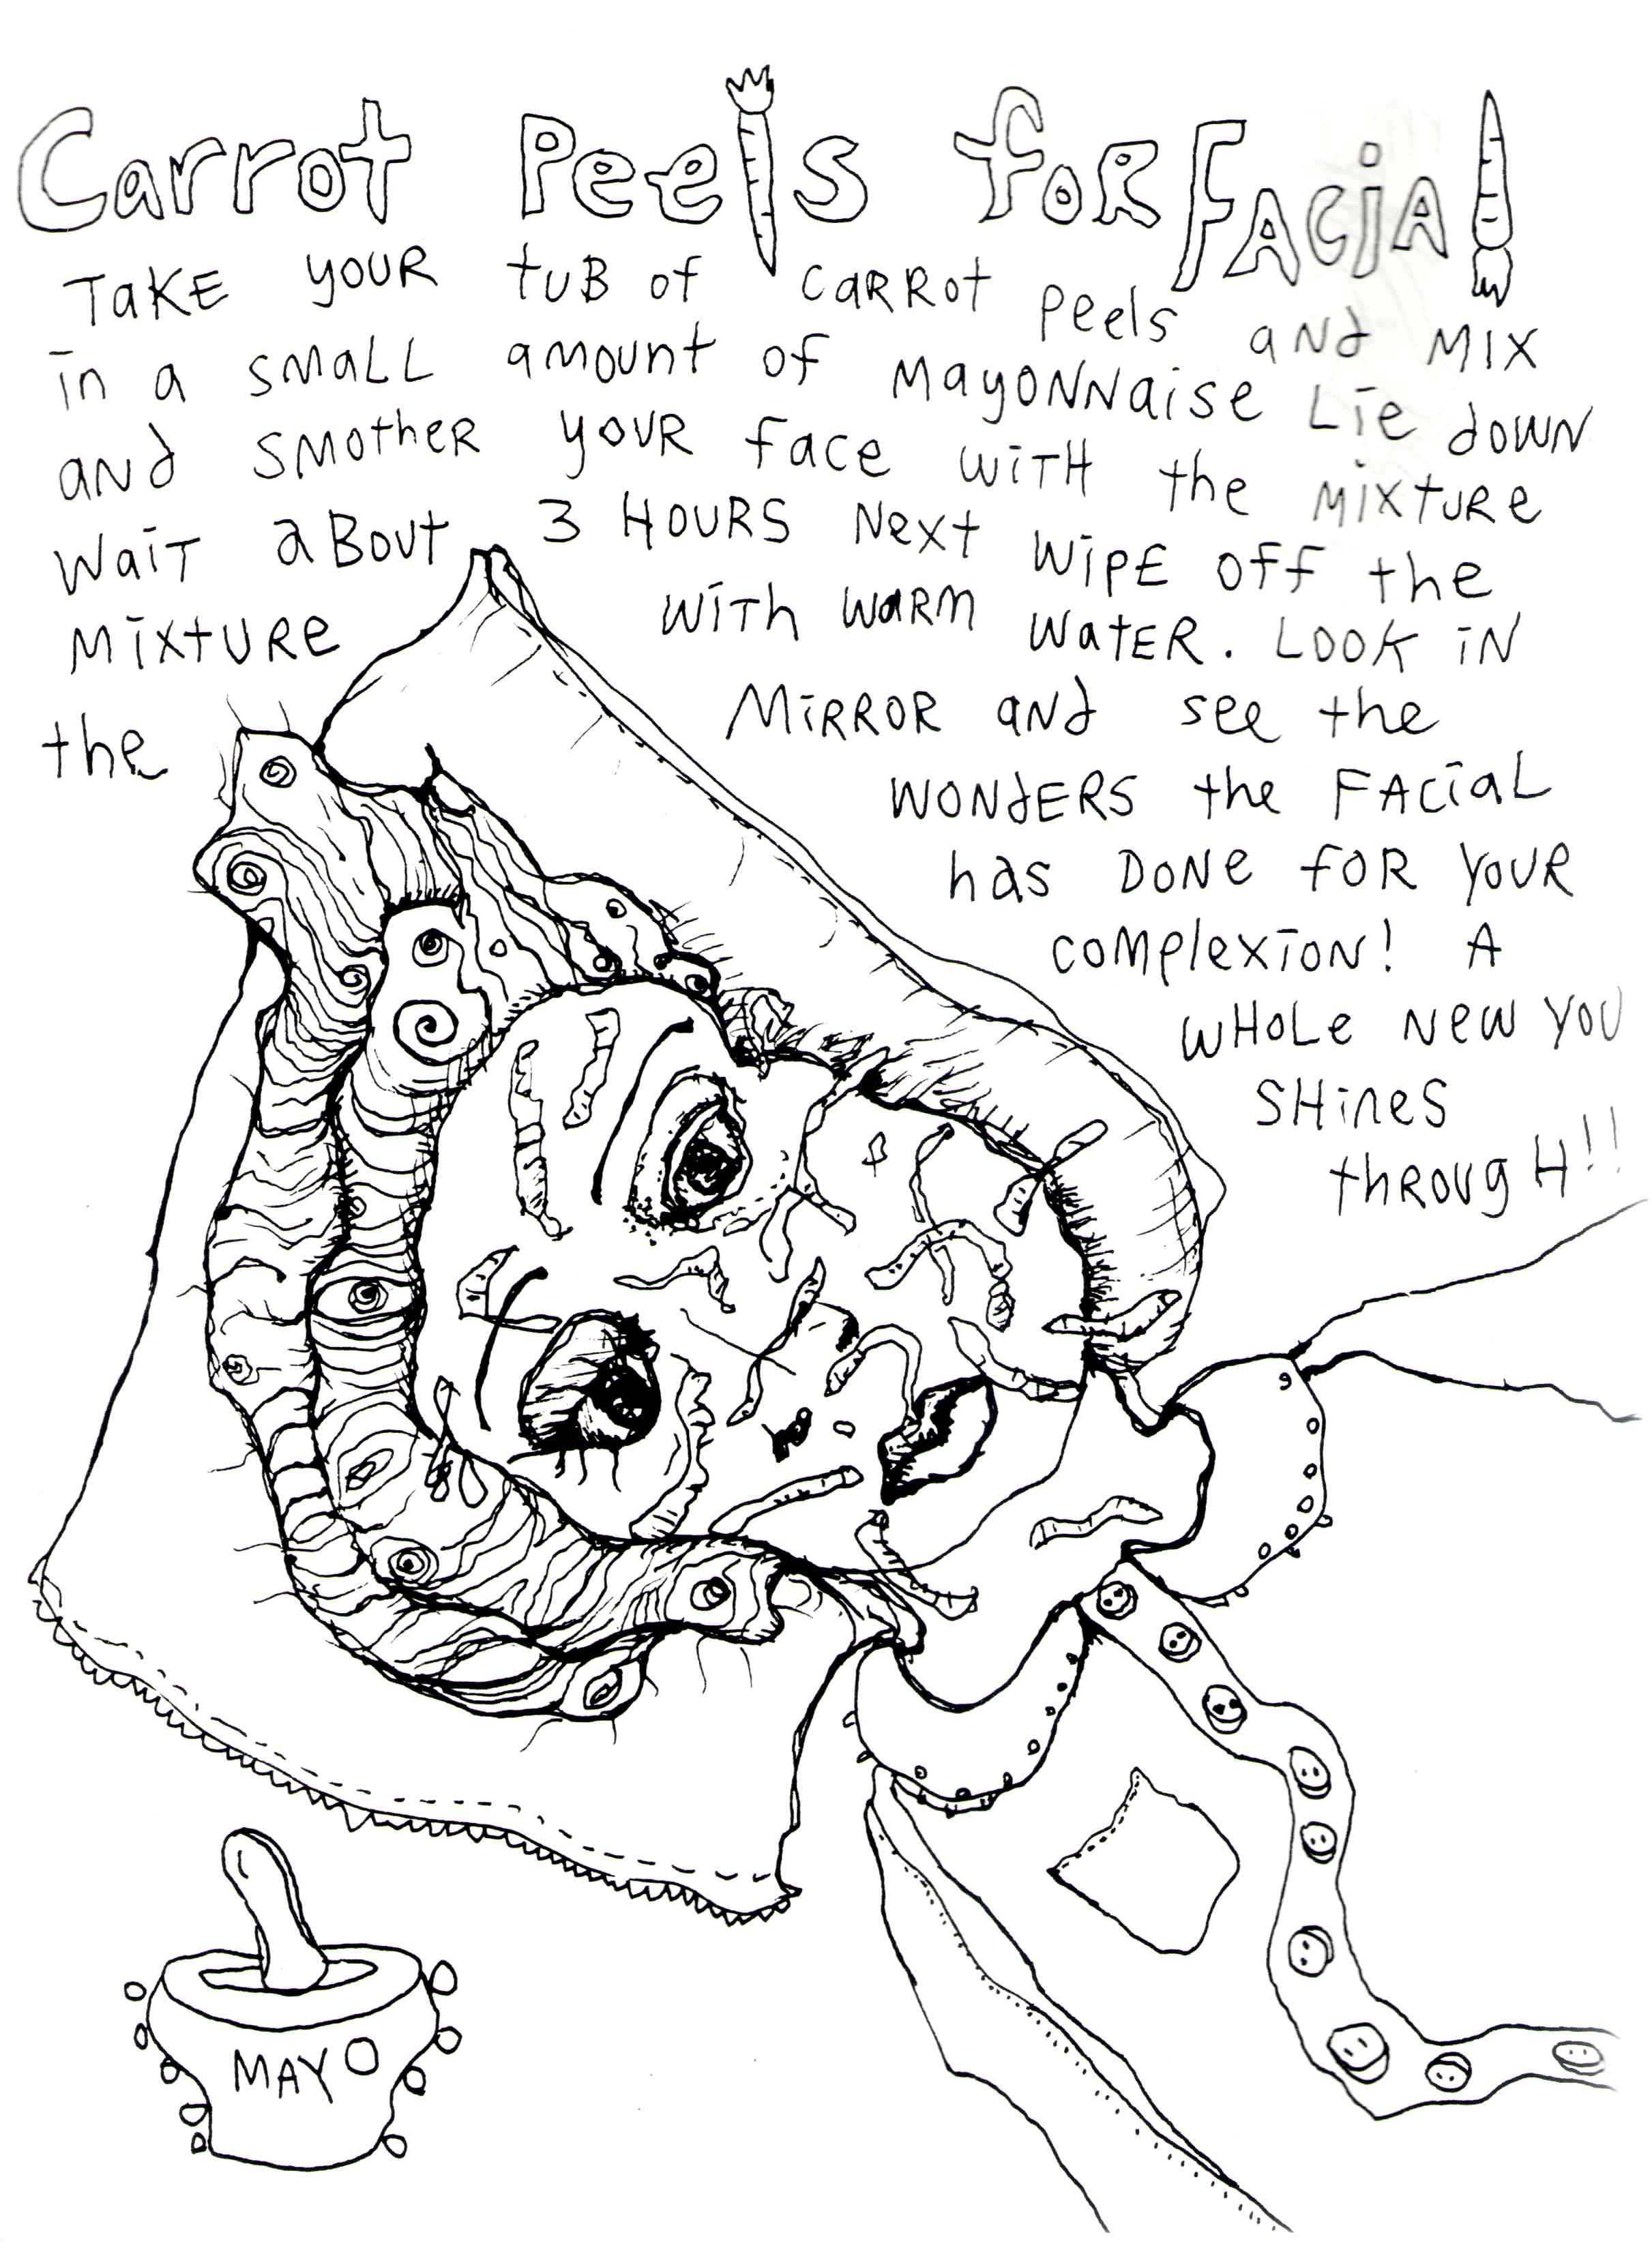 Carrot Peels foR FAciAl
TaKE YOUR tUB of caRROt Peels aNd MIX
in a SMaLL amount of MayoNNaise Lie dOWN
aNd SMotheR yOUR face WiTH the MixtURe
WaiT aBout 3 HOURS Next WiPE Off the
MixtURe WiTh WaRM WatER. LOOK iN
the MiRROR aNd see the
WONdERS the FAciaL
has DONe fOR YOUR
complexion! A
WHoLe New YOU
SHines
thRougH!!
MAYO